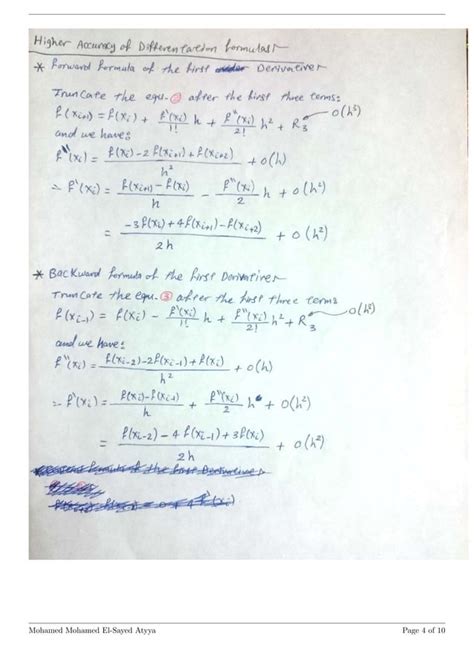 Higher Accuracy of Differentation formulas:-
* Forward Formula of the first Derivative:-
Truncate the equ. ② after the first three terms:
f(x_{i+1}) = f(x_i) + \frac{f'(x_i)}{1!} h + \frac{f''(x_i)}{2!} h^2 + R_3 → O(h^3)
and we have:
f''(x_i) = \frac{f(x_i) - 2 f(x_{i+1}) + f(x_{i+2})}{h^2} + O(h)
∴ f'(x_i) = \frac{f(x_{i+1}) - f(x_i)}{h} - \frac{f''(x_i)}{2} h + O(h^2)
= \frac{-3f(x_i) + 4f(x_{i+1}) - f(x_{i+2})}{2h} + O(h^2)
* Backward formula of the first Derivative:-
Truncate the equ. ③ after the first three terms
f(x_{i-1}) = f(x_i) - \frac{f'(x_i)}{1!} h + \frac{f''(x_i)}{2!} h^2 + R_3 → O(h^3)
and we have:
f''(x_i) = \frac{f(x_{i-2}) - 2f(x_{i-1}) + f(x_i)}{h^2} + O(h)
∴ f'(x_i) = \frac{f(x_i) - f(x_{i-1})}{h} + \frac{f''(x_i)}{2} h + O(h^2)
= \frac{f(x_{i-2}) - 4 f(x_{i-1}) + 3f(x_i)}{2h} + O(h^2)
Mohamed Mohamed El-Sayed Atyya Page 4 of 10